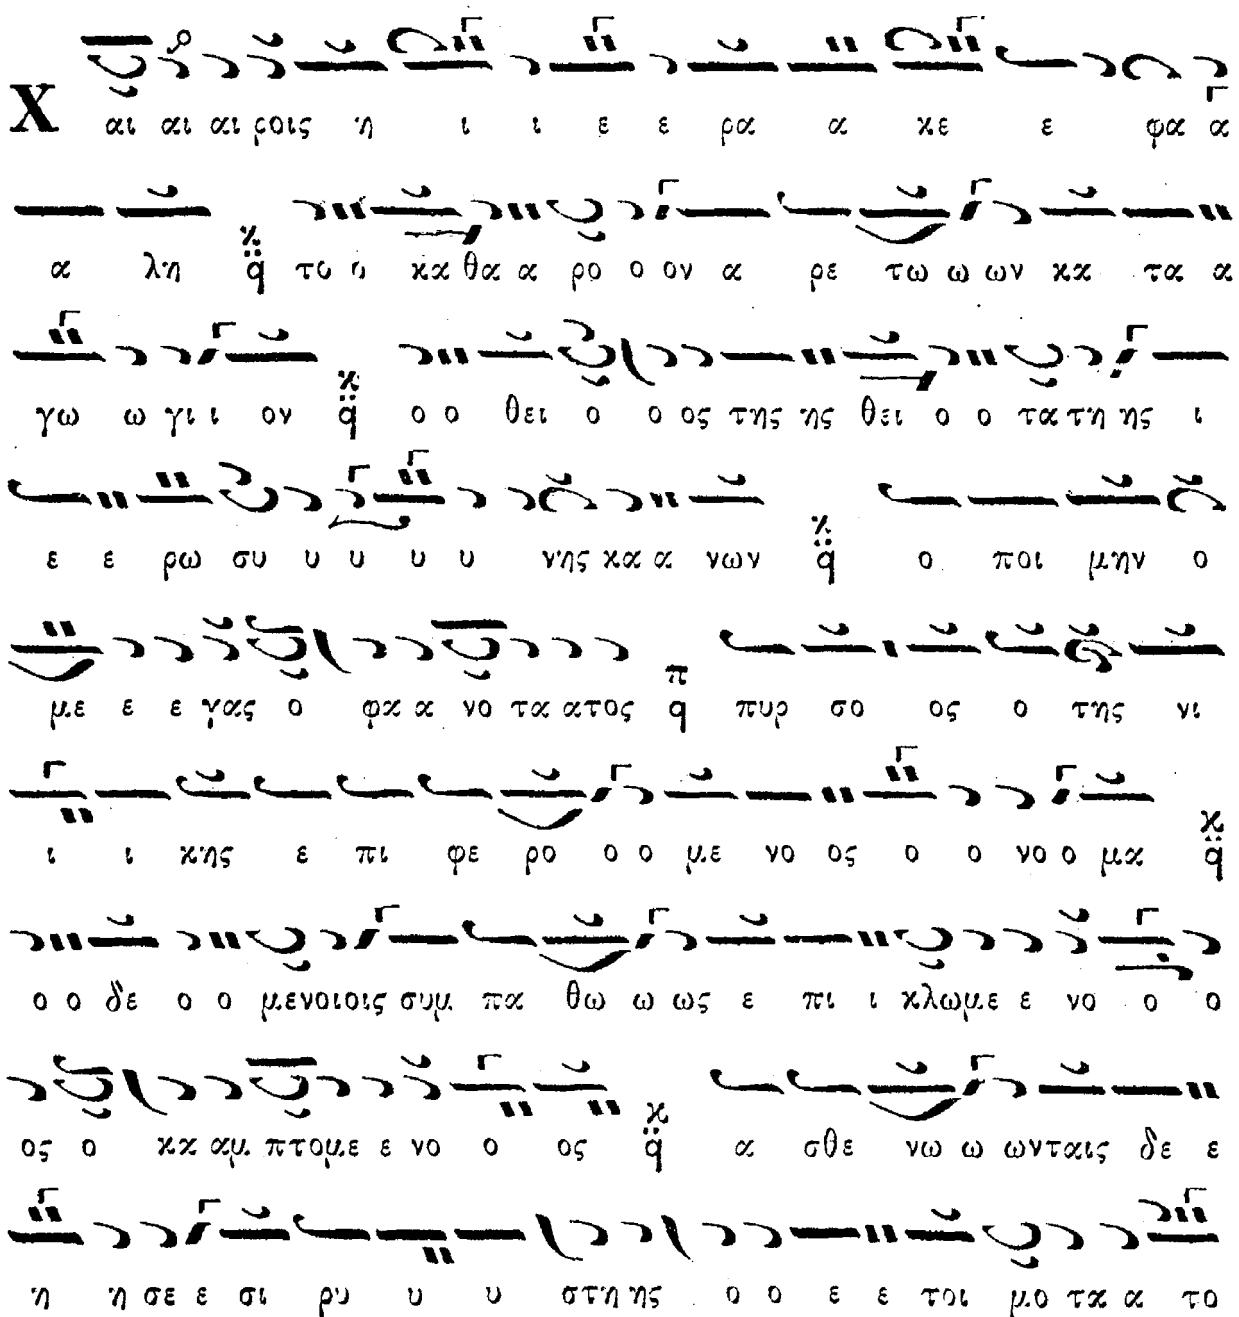 Χ αι αι αι ροις η ι ι ε ε ρα α κε ε φα α
α λη ϗ̈ q το υ κα θα α ρο ο ον α ρε τω ω ων κα τα α
γω ω γι ι ον ϗ̈ q ο ο θει ο ο ος της ης θει ο ο τα τη ης ι
ε ε ρω συ υ υ υ υ νης κα α νων ϗ̈ q ο ποι μην ο
με ε ε γας ο φα α νο τα ατος π q πυρ σο ος ο της νι
ι ι κης ε πι φε ρο ο ο με νο ος ο ο νο ο μα ϗ̈ q
ο ο δε ο ο μενοιοις συμ πα θω ω ως ε πι ι κλωμε ε νο ο ο
ος ο κα αμ πτομε ε νο ο ος ϗ̈ q α σθε νω ω ωνταις δε ε
η η σε ε σι ρυ υ υ στη ης ο ο ε ε τοι μο τα α το